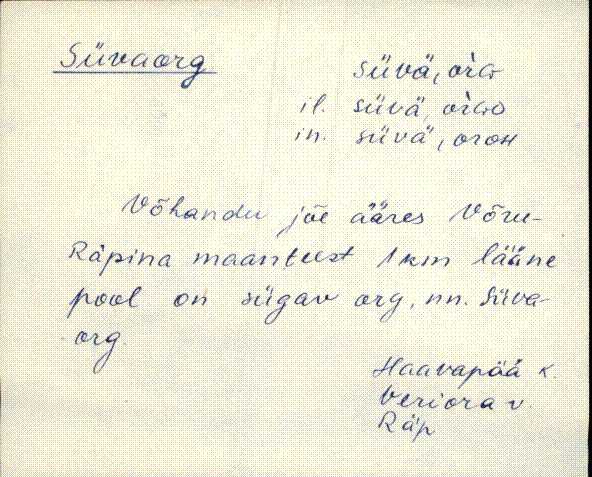 Süvaorg
süvä, òrG
il. süvä, òrGo
in. süvä, oron
Võhandu jõe ääres Võru-
Räpina maanteest 1 km lääne
pool on sügav org, nn. Süva-
org.
Haavapää k.
Veriora v.
Räp